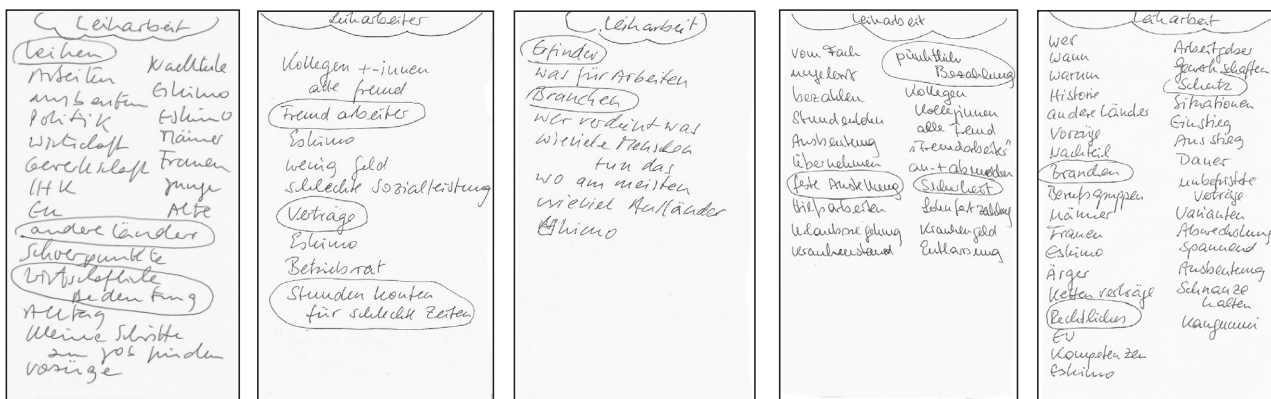 Leiharbeit
Leihen
Arbeiten
ausbeuten
Politik
Wirtschaft
Gewerkschaft
IHK
EU
andere Länder
Schwerpunkte
Wirtschaftliche
Bedeutung
Alltag
kleine Schritte
zum Job finden
Vorzüge
Nachteile
Eskimo
Eskimo
Männer
Frauen
Junge
Alte
Leiharbeiter
Kollegen +-innen
alle fremd
Fremdarbeiter
Eskimo
wenig Geld
schlechte Sozialleistung
Verträge
Eskimo
Betriebsrat
Stundenkonten
für schlechte Zeiten
Leiharbeit
Erfinder
was für Arbeiten
Branchen
wer verdient was
wieviele Menschen
tun das
wo am meisten
wieviel Ausländer
Eskimo
Leiharbeit
vom Fach
ungelernt
bezahlen
Stundenlohn
Ausbeutung
übernehmen
feste Anstellung
Hilfsarbeiten
Urlaubsregelung
Krankenstand
pünktlich
Bezahlung
Kollegen
Kolleginnen
alle fremd
"Fremdarbeiter"
an-+abmelden
Sicherheit
Lohnfortzahlung
Krankengeld
Entlassung
Leiharbeit
wer
wann
warum
Historie
andere Länder
Vorzüge
Nachteil
Branchen
Berufsgruppen
Männer
Frauen
Eskimo
Ärger
Kettenverträge
Rechtliches
EU
Kompetenzen
Eskimo
Arbeitgeber
Gewerkschaften
Schutz
Situationen
Einstieg
Ausstieg
Dauer
unbefristete
Verträge
Varianten
Abwechslung
spannend
Ausbeutung
Schnauze
halten